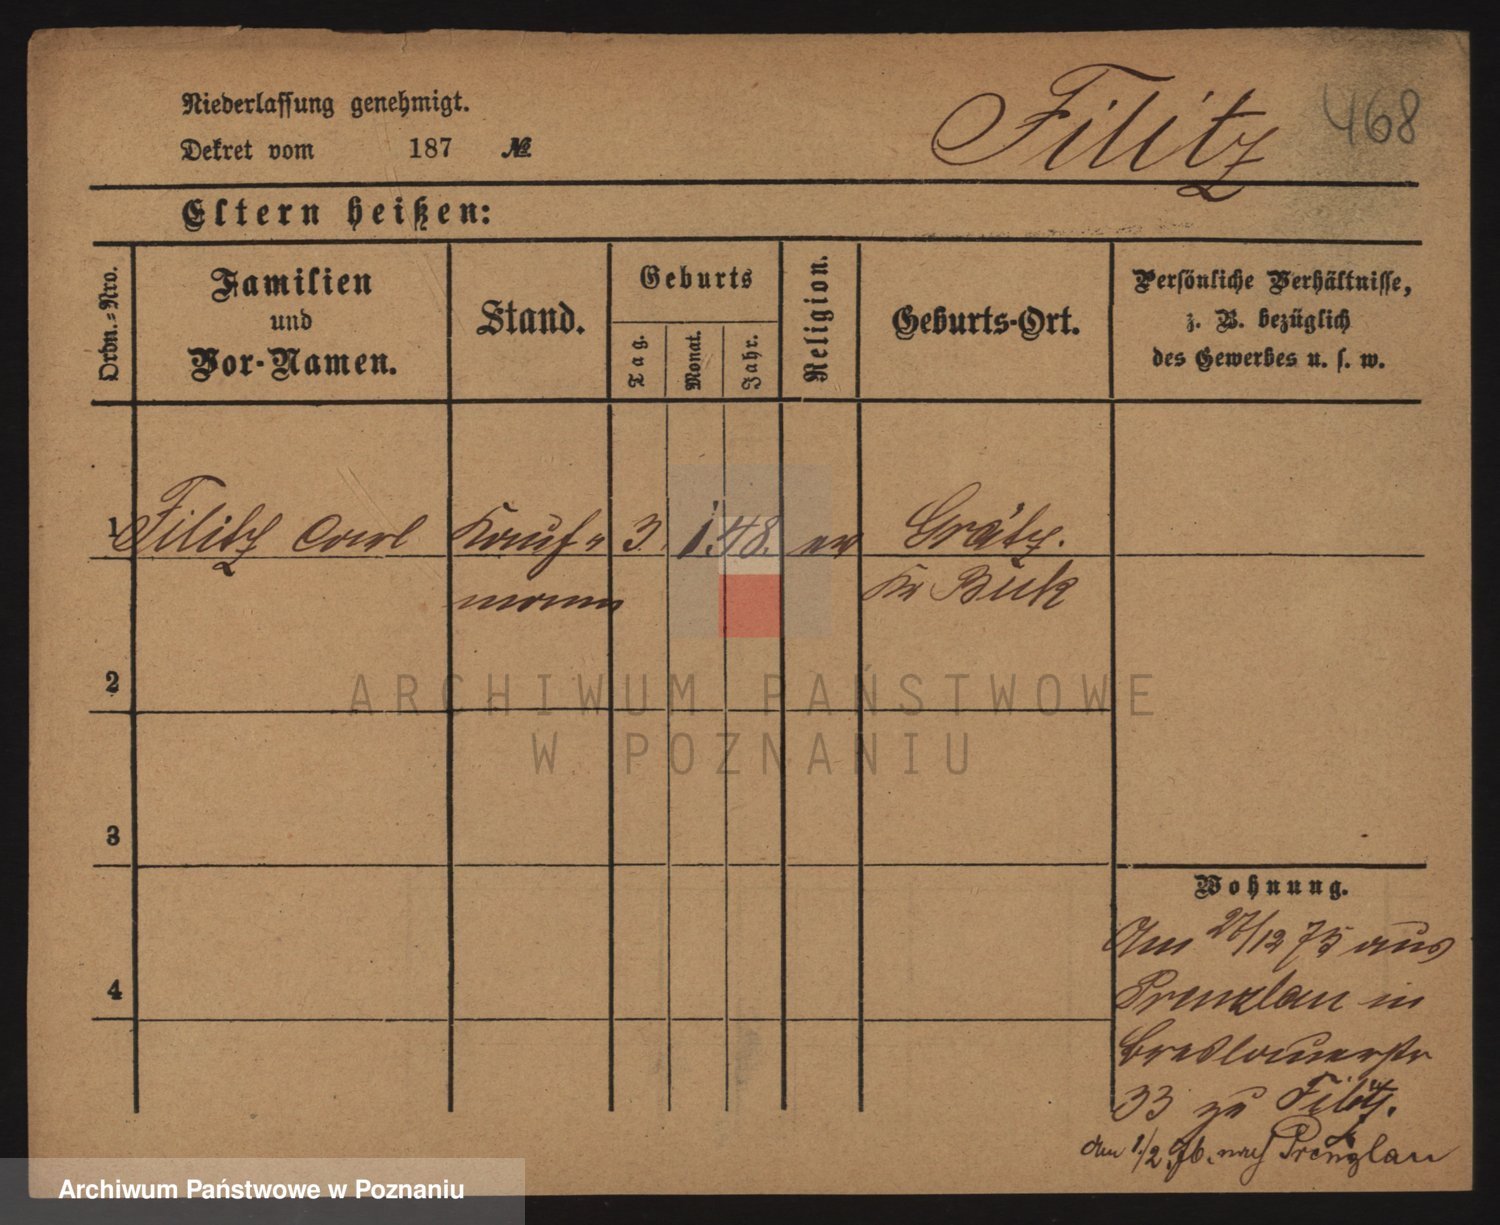 Niederlassung genehmigt.
Dekret vom 187 №
Filitz
468
Eltern heißen:
Ordn.-Nro.
Familien
und
Vor-Namen.
Stand.
Geburts
Tag.
Monat.
Jahr.
Religion.
Geburts-Ort.
Persönliche Verhältnisse,
z. B. bezüglich
des Gewerbes u. s. w.
1 Filitz Carl Kauf- 3. 1. 48. ev Grätz.
mann Kr Buk
2
ARCHIWUM PAŃSTWOWE
W POZNANIU
3
4
Wohnung.
Am 27/12 75 aus
Prenzlau in
Breslauerstr
33 zu Filitz.
am 1/2 76. nach Prenzlau
Archiwum Państwowe w Poznaniu